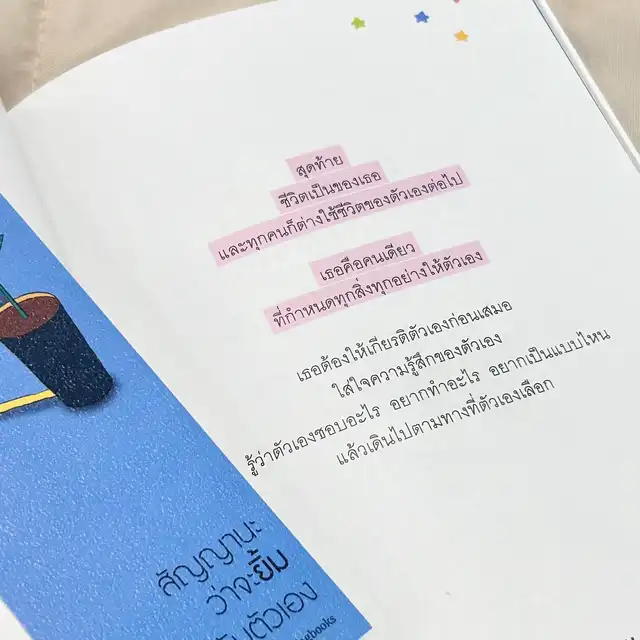 สุดท้าย
ชีวิตเป็นของเธอ
และทุกคนก็ต่างใช้ชีวิตของตัวเองต่อไป
เธอคือคนเดียว
ที่กำหนดทุกสิ่งทุกอย่างให้ตัวเอง
เธอต้องให้เกียรติตัวเองก่อนเสมอ
ใส่ใจความรู้สึกของตัวเอง
รู้ว่าตัวเองชอบอะไร อยากทำอะไร อยากเป็นแบบไหน
แล้วเดินไปตามทางที่ตัวเองเลือก
สัญญานะ
ว่าจะยิ้ม
ตัวเอง